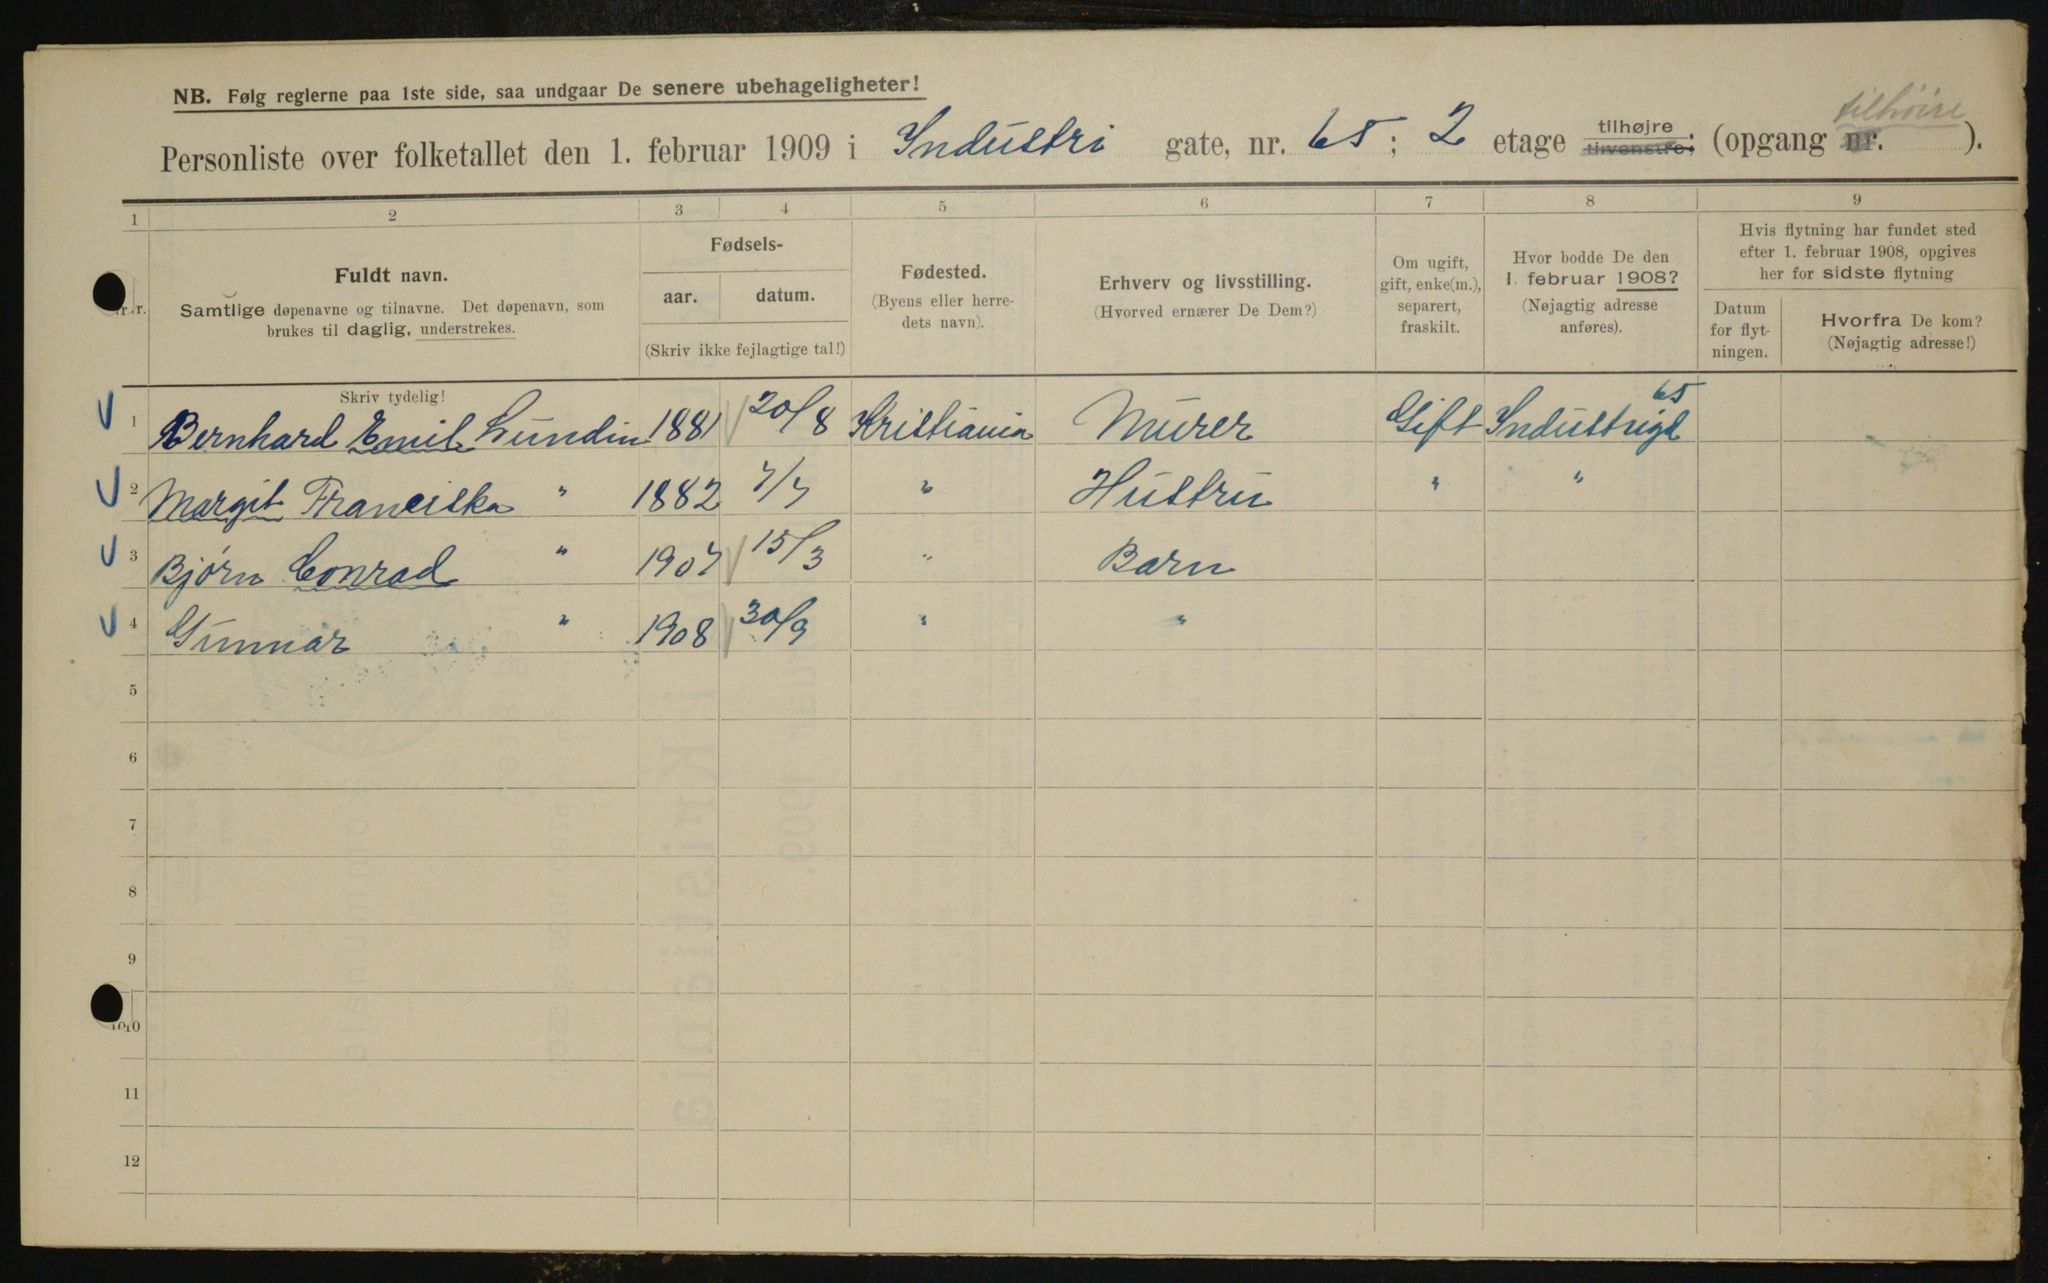 NB. Følg reglerne paa 1ste side, saa undgaar De senere ubehageligheter!
tilhöire
Personliste over folketallet den 1. februar 1909 i Industri gate, nr. 65; 2 etage tilhøjre tilvenstre; (opgang nr. ).
1 2 3 4 5 6 7 8 9
Nr. Fuldt navn.
Samtlige døpenavne og tilnavne. Det døpenavn, som
brukes til daglig, understrekes.
Fødsels-
aar. datum.
(Skriv ikke fejlagtige tal!)
Fødested.
(Byens eller herre-
dets navn).
Erhverv og livsstilling.
(Hvorved ernærer De Dem?)
Om ugift,
gift, enke(m.),
separert,
fraskilt.
Hvor bodde De den
1. februar 1908?
(Nøjagtig adresse
anføres).
Hvis flytning har fundet sted
efter 1. februar 1908, opgives
her for sidste flytning
Datum
for flyt-
ningen.
Hvorfra De kom?
(Nøjagtig adresse!)
Skriv tydelig!
1 Bernhard Emil Lundin 1881 20/8 Kristiania Murer Gift Industrigt 65
2 Margit Franciska " 1882 7/7 " Hustru " "
3 Bjørn Conrad " 1907 15/3 " Barn
4 Gunnar " 1908 30/9 " "
5
6
7
8
9
10
11
12